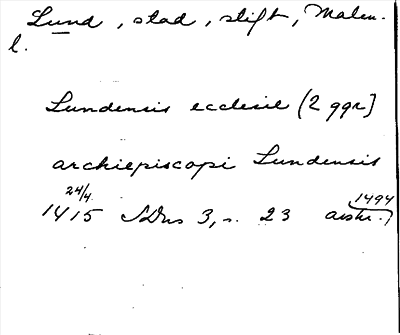 Lund, stad, stift, Malm.
l.
Lundensis ecclesie (2 ggr)
archiepiscopi Lundensis
24/4
1415 SDns 3, s. 23 avskr. 1494